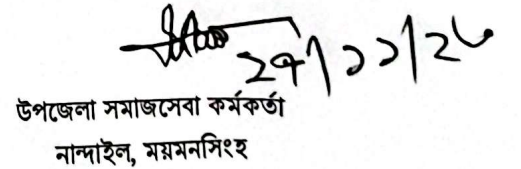 উপজেলা সমাজসেবা কর্মকর্তা
নান্দাইল, ময়মনসিংহ